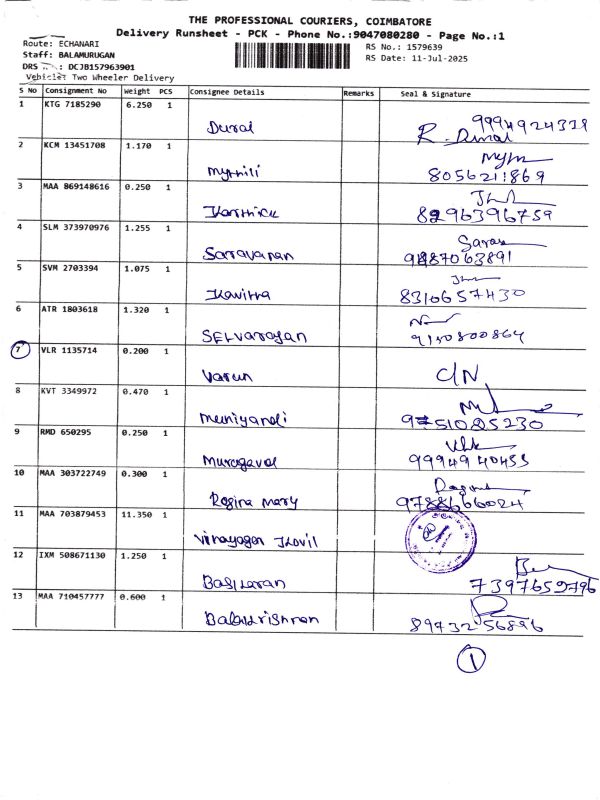 THE PROFESSIONAL COURIERS, COIMBATORE
Delivery Runsheet - PCK - Phone No.:9047080280 - Page No.:1
Route: ECHANARI
RS No.: 1579639
Staff: BALAMURUGAN
RS Date: 11-Jul-2025
DRS : DCJB157963901
Vehicle: Two Wheeler Delivery
S No Consignment No Weight PCS Consignee Details Remarks Seal & Signature
1 KTG 7185290 6.250 1
Durai R. Durai 9994924329
2 KCM 13451708 1.170 1
Mythili 8056211869
3 MAA 869148616 0.250 1
Karthick 8296396759
4 SLM 373970976 1.255 1
Saravanan Sarav 9487063891
5 SVM 2703394 1.075 1
Kavitha 8310657430
6 ATR 1803618 1.320 1
SELvarajan 9140800864
7 VLR 1135714 0.200 1
Varun C/N
8 KVT 3349972 0.470 1
Muniyandi 9751085230
9 RMD 650295 0.250 1
Murugavel 9994940453
10 MAA 303722749 0.300 1
Regina Mary 9788666024
11 MAA 703879453 11.350 1
Vinayagan Kovil
12 IXM 508671130 1.250 1
Baskaran 7397659796
13 MAA 710457777 0.600 1
Balakrishnan 8973256896
1